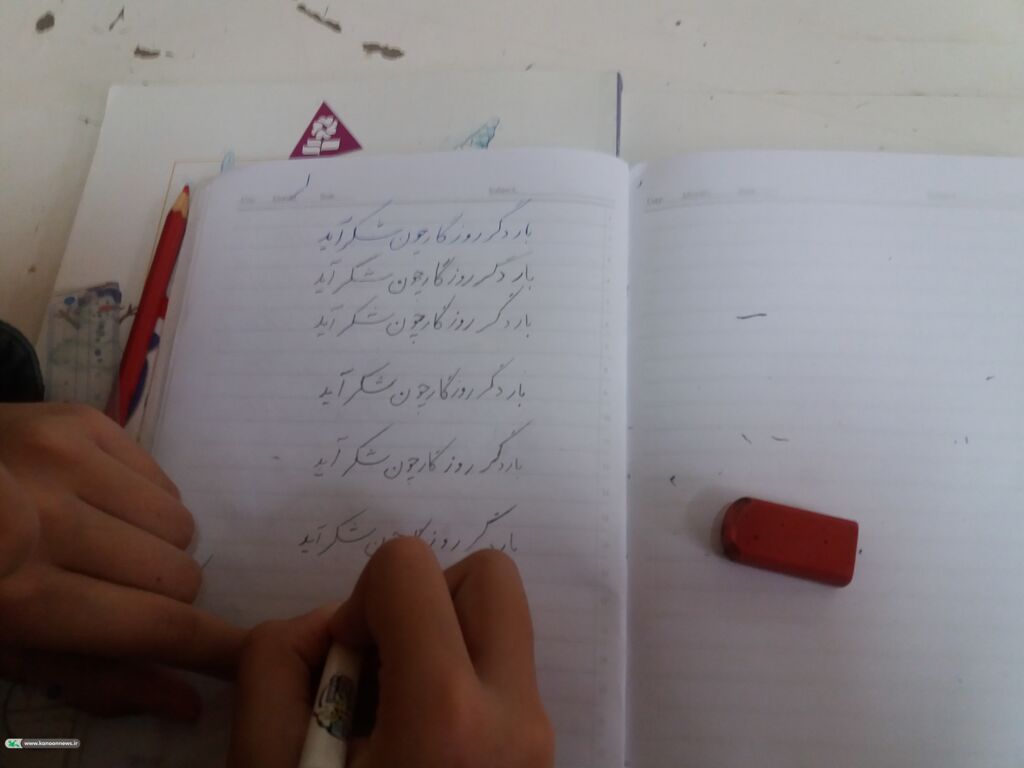 Subject:
بار دگر روزگار چون شکر آید
بار دگر روزگار چون شکر آید
بار دگر روزگار چون شکر آید
بار دگر روزگار چون شکر آید
بار دگر روزگار چون شکر آید
بار دگر روزگار چون شکر آید
www.kanoonnews.ir